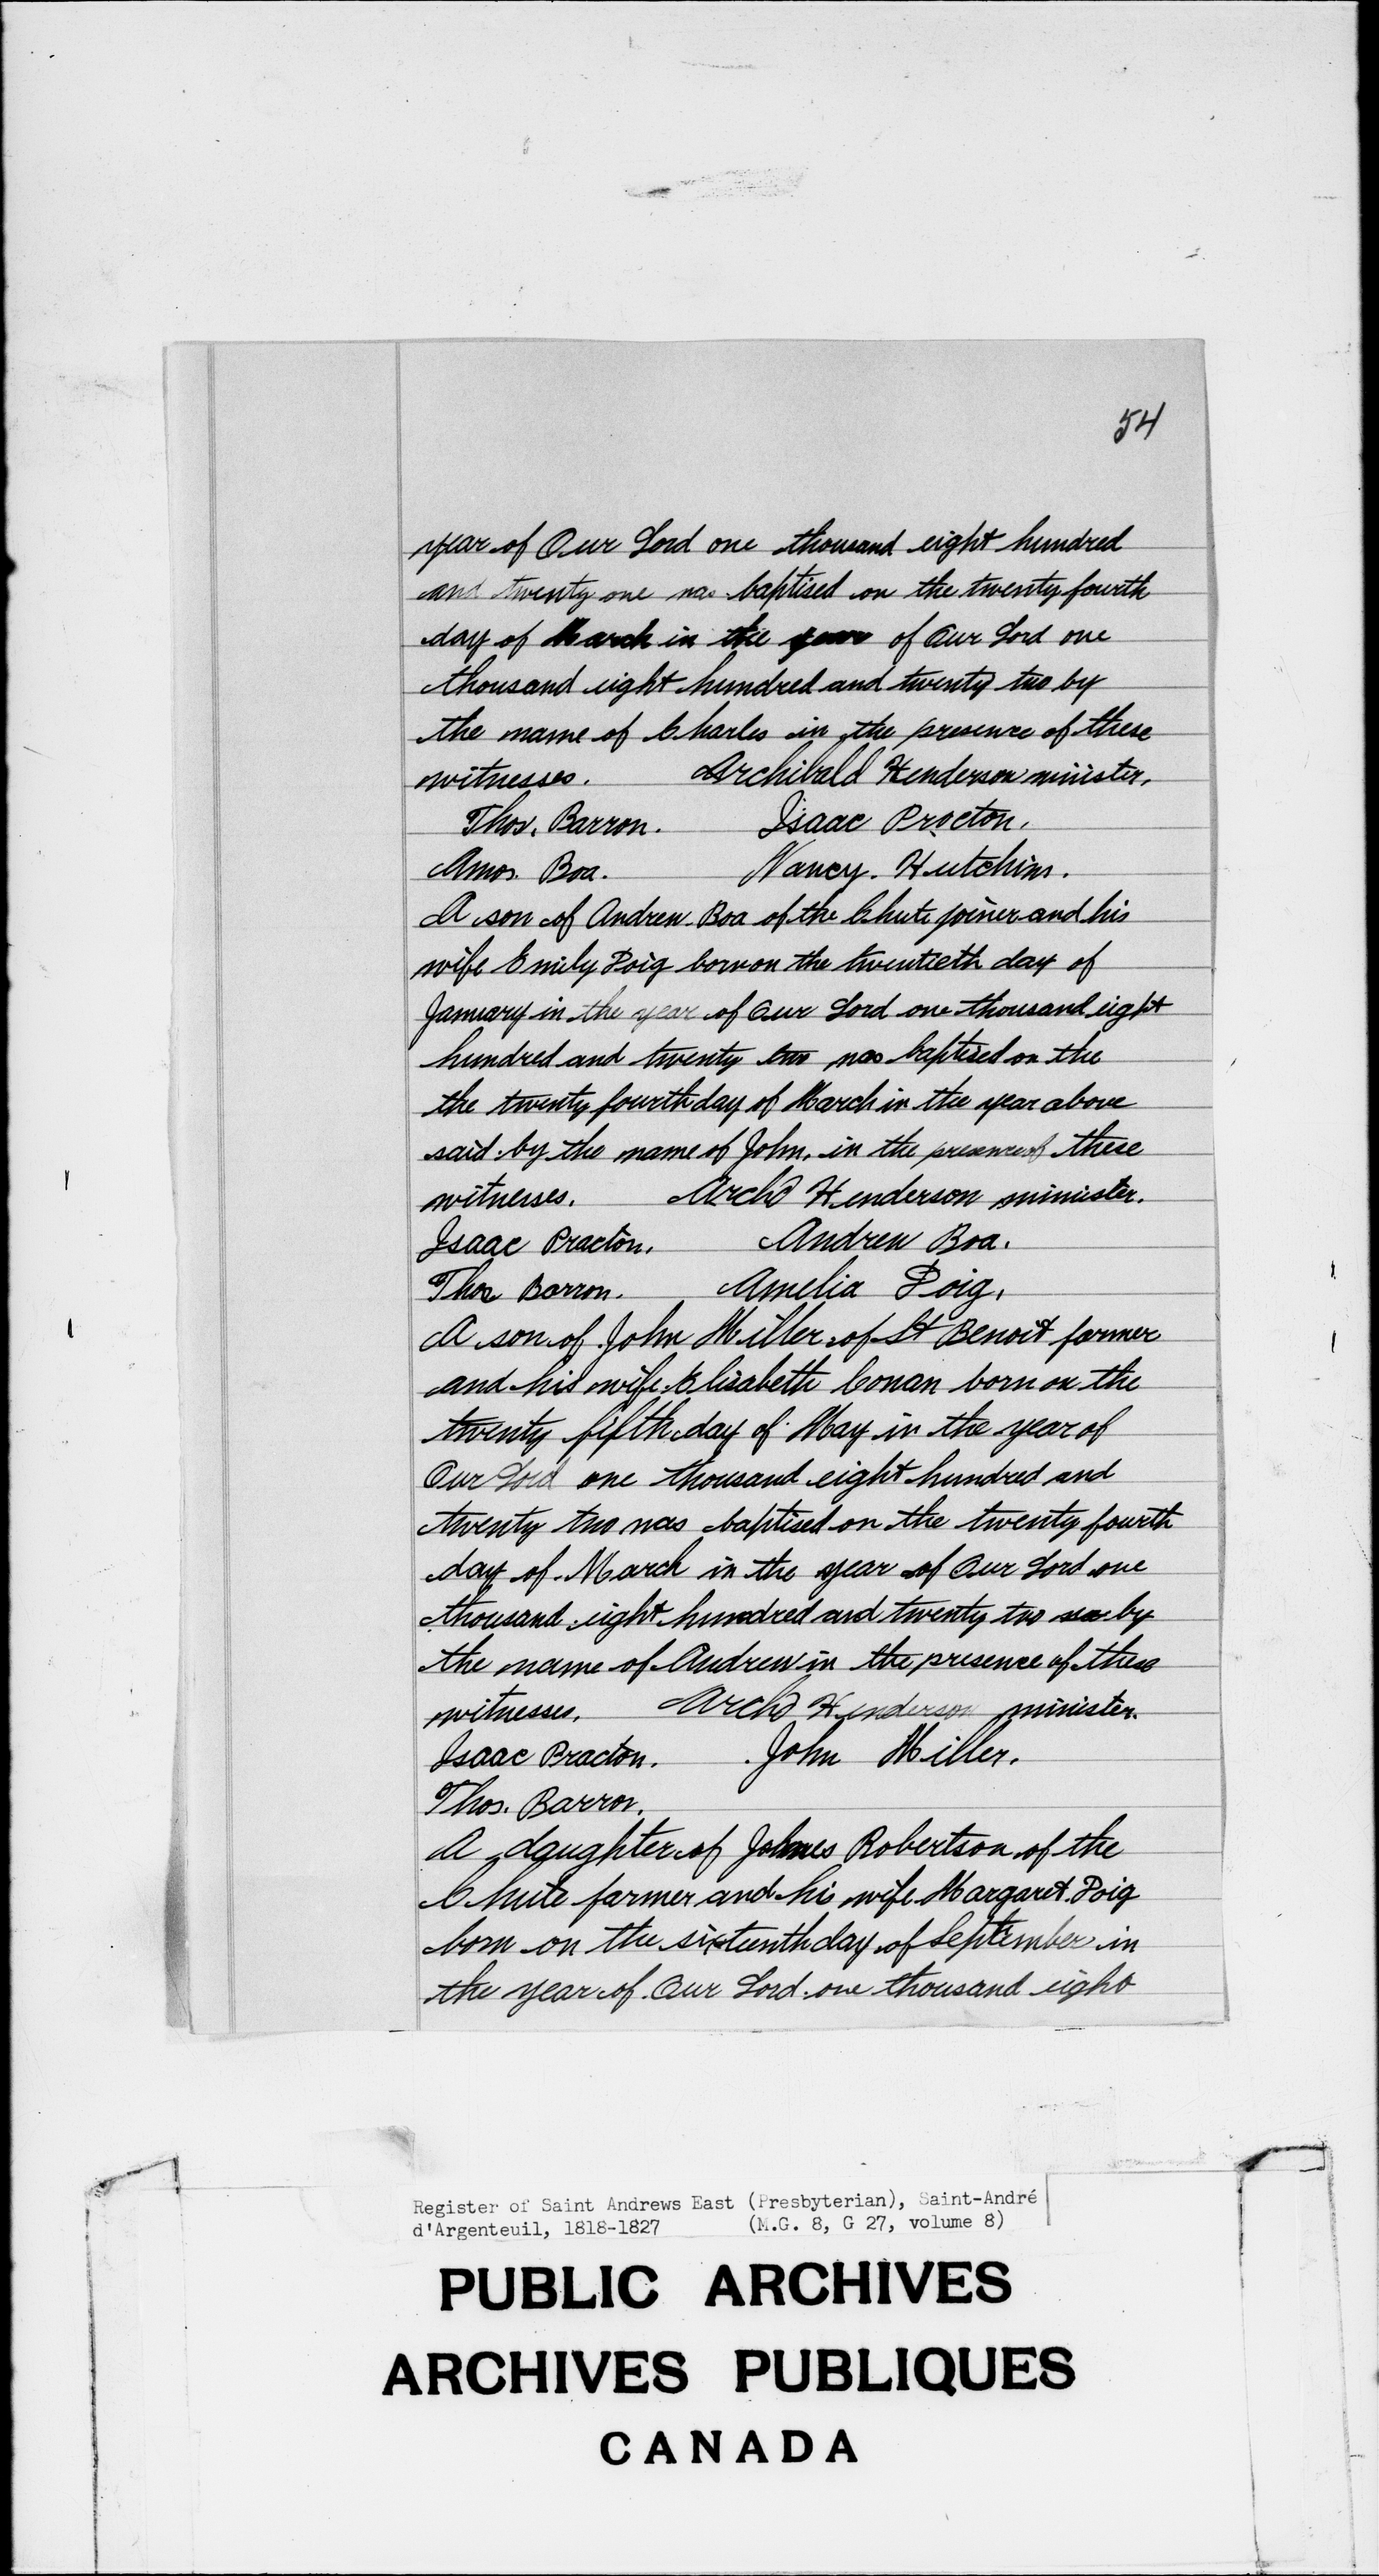 54
year of Our Lord one thousand eight hundred
and twenty one was baptised on the twenty fourth
day of March in the year of Our Lord one
thousand eight hundred and twenty two by
the name of Charles in the presence of these
witnesses. Archibald Henderson minister.
Thos. Barron. Isaac Procton.
Amos Boa. Nancy Hutchins.
A son of Andrew Boa of the Chute joiner and his
wife Emily Poig born on the twentieth day of
January in the year of Our Lord one thousand eight
hundred and twenty two was baptised on the
the twenty fourth day of March in the year above
said by the name of John, in the presence of these
witnesses. Archd Henderson minister.
Isaac Procton. Andrew Boa.
Thos Barron. Amelia Poig.
A son of John Miller of St Benoit farmer
and his wife Elisabeth Conan born on the
twenty fifth day of May in the year of
Our Lord one thousand eight hundred and
twenty two was baptised on the twenty fourth
day of March in the year of Our Lord one
thousand eight hundred and twenty two by
the name of Andrew in the presence of these
witnesses. Archd Henderson minister.
Isaac Procton. John Miller.
Thos. Barron.
A daughter of James Robertson of the
Chute farmer and his wife Margaret Poig
born on the sixteenth day of September in
the year of Our Lord one thousand eight
Register of Saint Andrews East (Presbyterian), Saint-André
d'Argenteuil, 1818-1827 (M.G. 8, G 27, volume 8)
PUBLIC ARCHIVES
ARCHIVES PUBLIQUES
CANADA